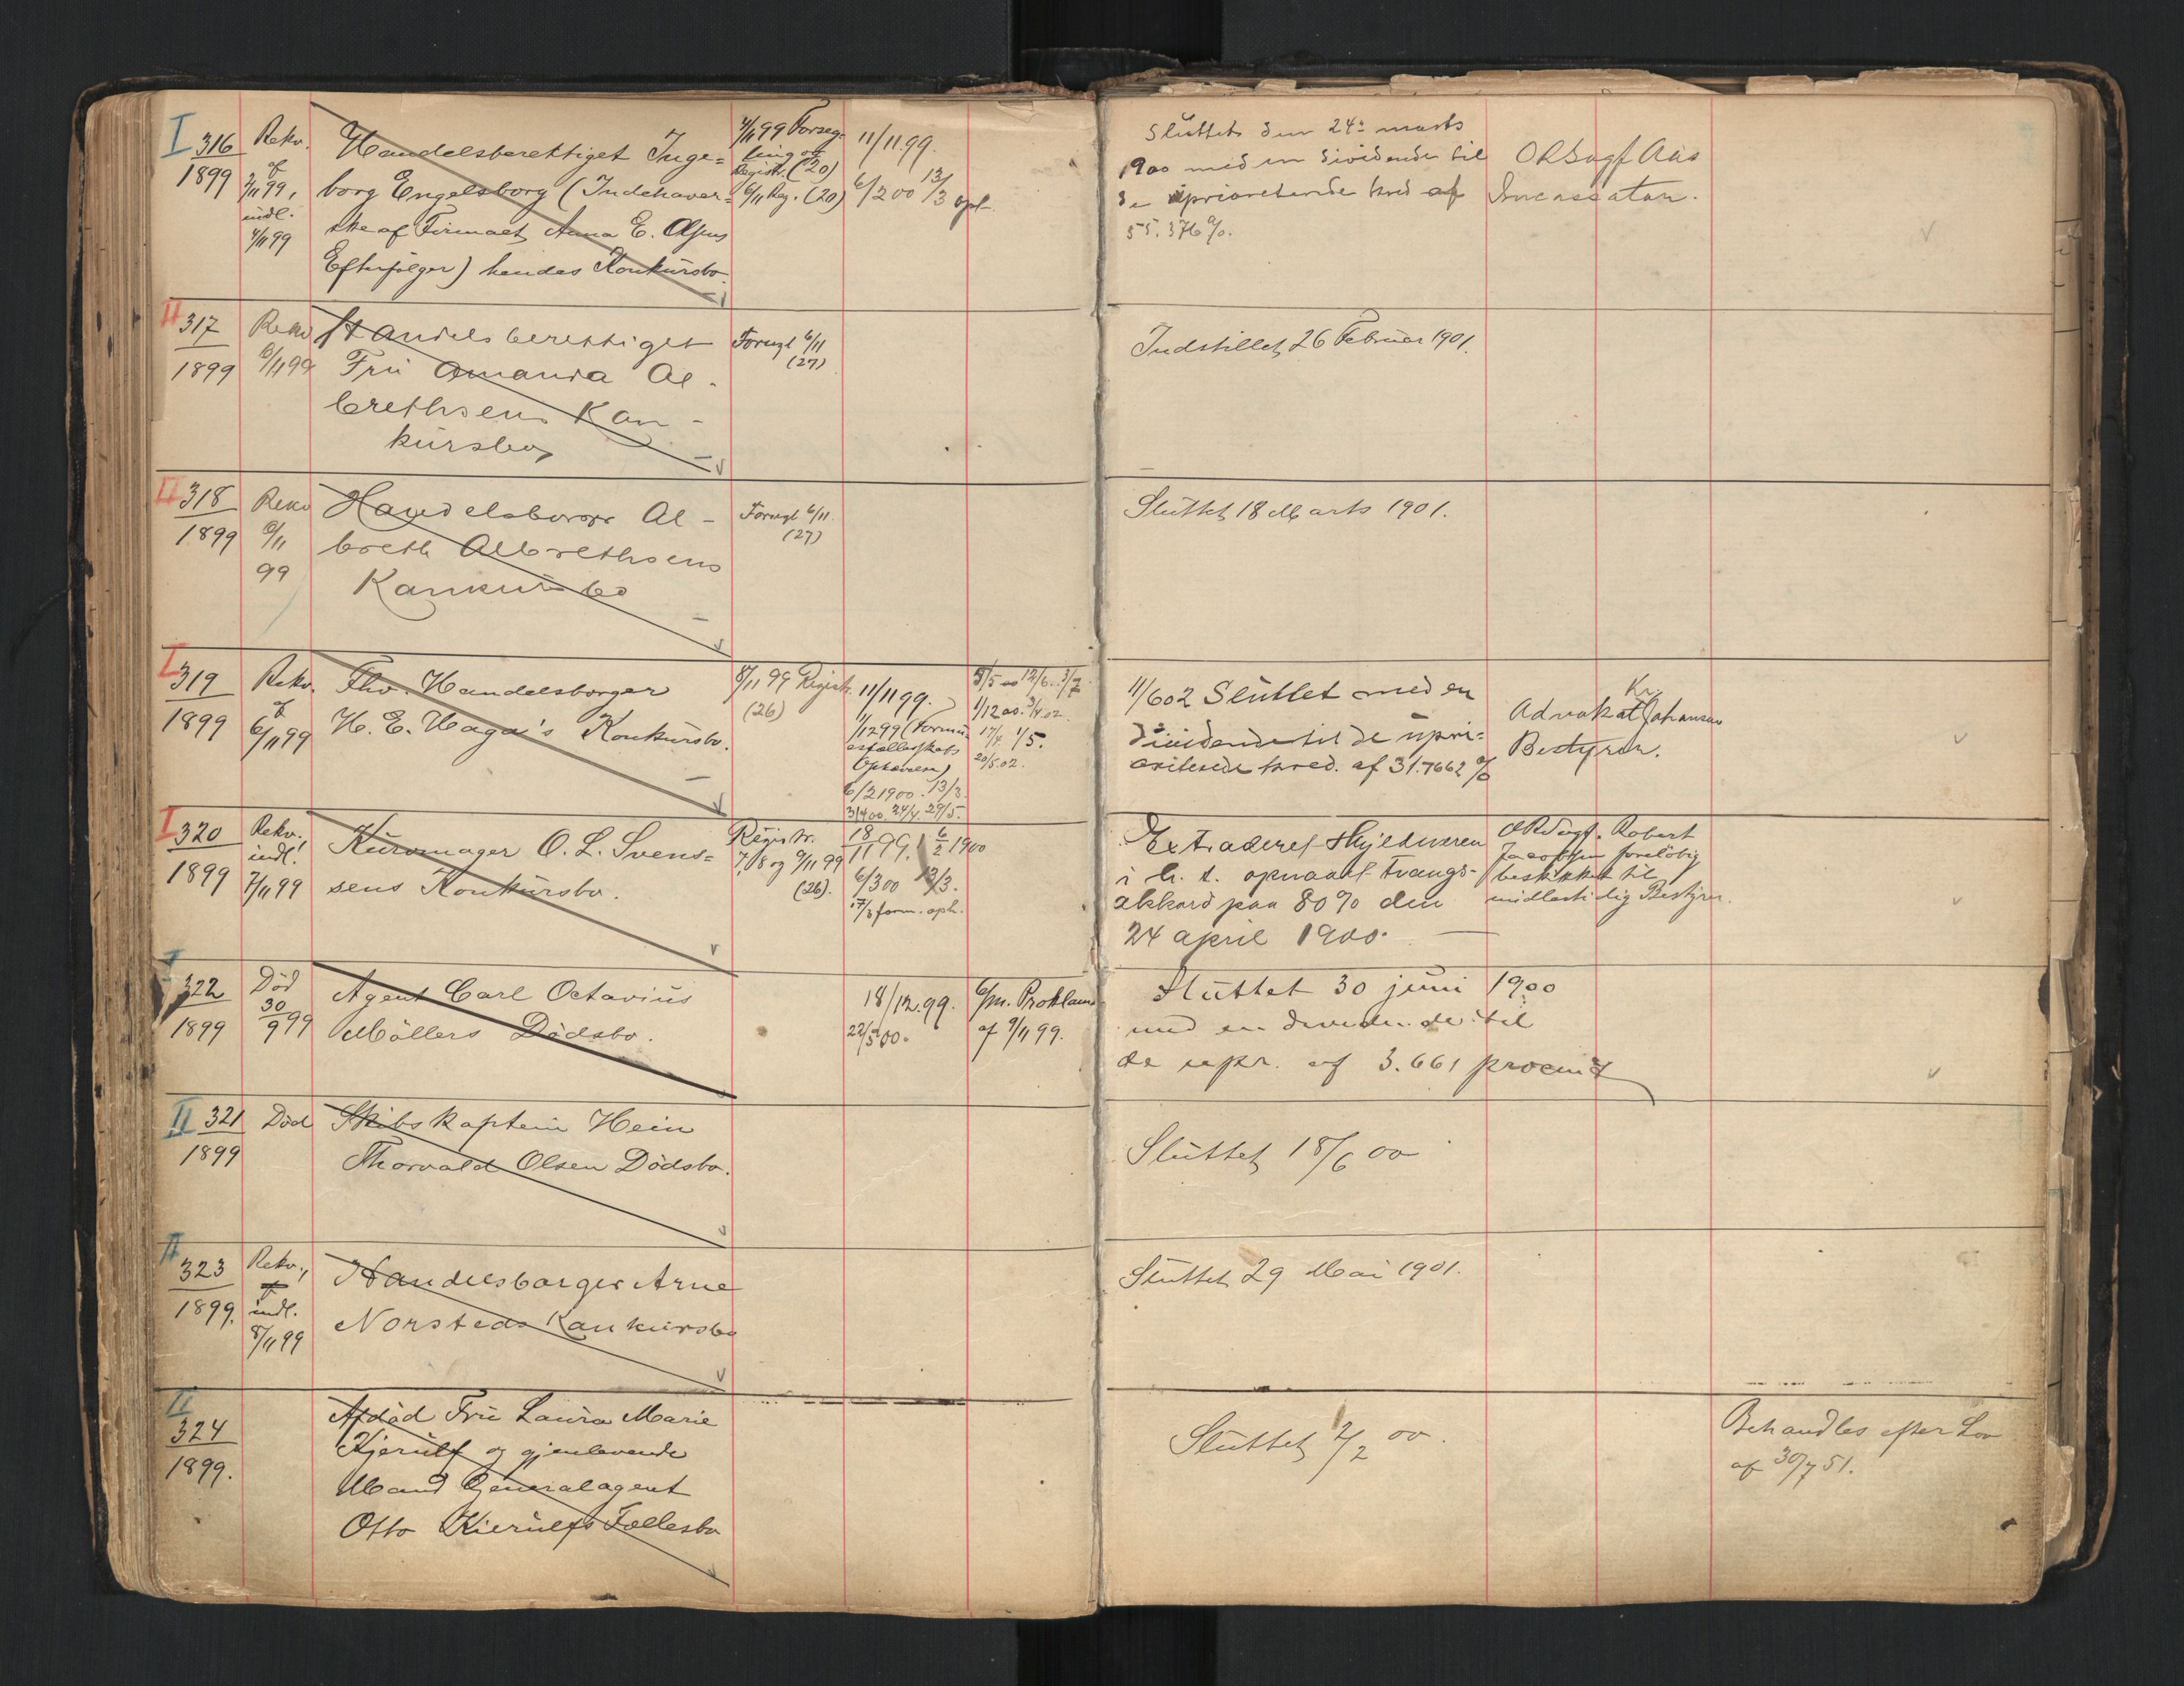 I 316
1899
Rekv.
af
2/11 99,
indl.
4/11 99
Handelsberettiget Inge=
borg Engelsborg (Indehaver=
ske af Firmaet Anna E. Olsens
Efterfølger) hendes Konkursbo.
4/11 99 Forseg-
ling og
Registr. (20)
6/11 Reg. (20)
11/11 99.
6/2 00 13/3
Sluttet den 24de marts
1900 med en dividende til
de uprioreterede kred af
55.376 %.
ORSagf Aas
Incassator.
II 317
1899
Rekv
6/11 99
Handelsberettiget
Fru Amanda Al-
brethsens Kon-
kursbo
6/11
(27)
Indstillet 26 Februar 1901.
II 318
1899
Rekv
6/11
99
Handelsborger Al-
breth Albrethsens
Konkursbo
6/11
(27)
Sluttet 18 Marts 1901.
I 319
1899
Rekv.
af
6/11 99
Fhv. Handelsborger
H. E. Haga's Konkursbo.
8/11 99 Registr.
(26)
11/11 99.
1/12 99 (Formu-
esfællesskabs
Ophævelse)
6/2 1900. 13/3.
3/4 00. 24/4. 29/5.
1/5.
20/5.02.
11/6 02 Sluttet med en
dividende til de upri=
oriterede kred. af 31.7662 %
Advokat Kr. Johansen
Bestyrer.
I 320
1899
Rekv.
indl.
7/11 99
Kurvmager O. L. Svens=
sens Konkursbo.
Registr.
7, 8 og 9/11 99
(26).
18/11 99. 6/2 1900
6/3 00 13/3.
17/3 form. oph.
Extraderet Skyldneren
i h. t. opnaaet Tvangs-
akkord paa 80% den
24 april 1900.
ORSagf. Robert
Jacobsen foreløbig
beskikket til
midlertidig Bestyrer.
I 322
1899
Død
30/9 99
Agent Carl Octavius
Møllers Dødsbo.
18/12.99.
22/5 00.
6/m. Proklama
af 9/11 99.
Sluttet 30 juni 1900
med en dividende til
de upr. af 3.661 procent
II 321
1899
Død
Skibskaptein Hein
Thorvald Olsen Dødsbo.
Sluttet 18/6 00
II 323
1899.
Rekv.,
indl.
8/11 99
Handelsborger Arne
Norsteds Konkursbo
Sluttet 29 Mai 1901.
II
324
1899.
Afdød Fru Laura Marie
Kjerulf og gjenlevende
Mand Generalagent
Otto Kierulfs Fællesbo
Sluttet 12/2 00.
Behandles efter Lov
af 30/7 51.